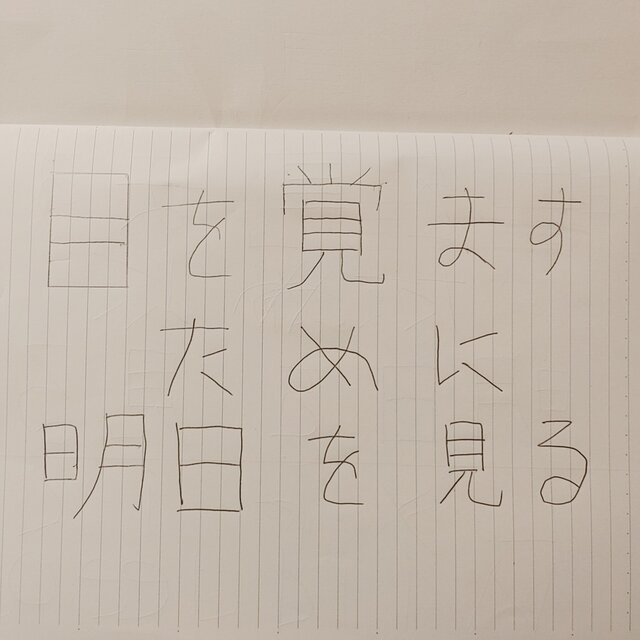 目を覚ます
ために
明日を見る